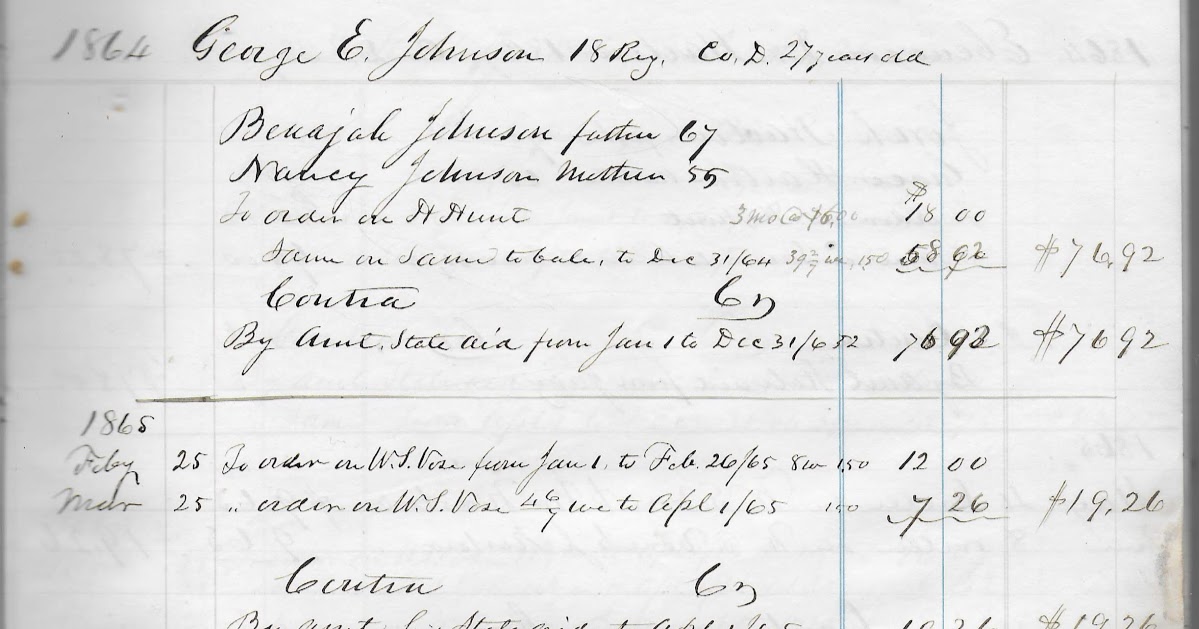 1864 George E. Johnson 18 Reg. Co. D. 27 years old
Benajah Johnson father 67
Nancy Johnson Mother 55
To order on H Hunt 3 mo @ $6.00 $18 00
Same on Same to bale, to Dec 31/64 39 2/7 we, 150 58 92 $76,92
Contra Cr
By Amt. State aid from Jan 1 to Dec 31/6 52 76 92 $76 92
1865
Feby 25 To order on W.S. Vose from Jan 1, to Feb. 26/65 8w 150 12 00
Mar 25 " order on W.S. Vose 4 6/7 we to Apl 1/65 150 7 26 $19,26
Contra Cr
By Amt State aid to Apl 1/65 19 26 $19 26